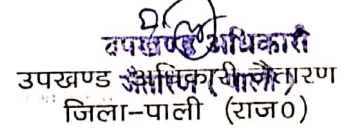 उपखण्ड अधिकारी
उपखण्ड अधिकारी जैतारण
जिला-पाली (राज0)